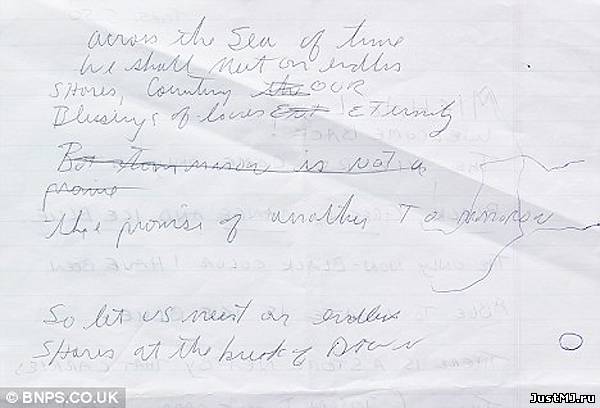 across the Sea of time
We shall meet on endless
SHores, Counting the OUR
Blessings of loves Ent ETernity
But tommorow is not a
promise
the promise of another Tommorow
So let us meet on endless
SHores at the break of Dawn
© BNPS.CO.UK
JustMJ.ru